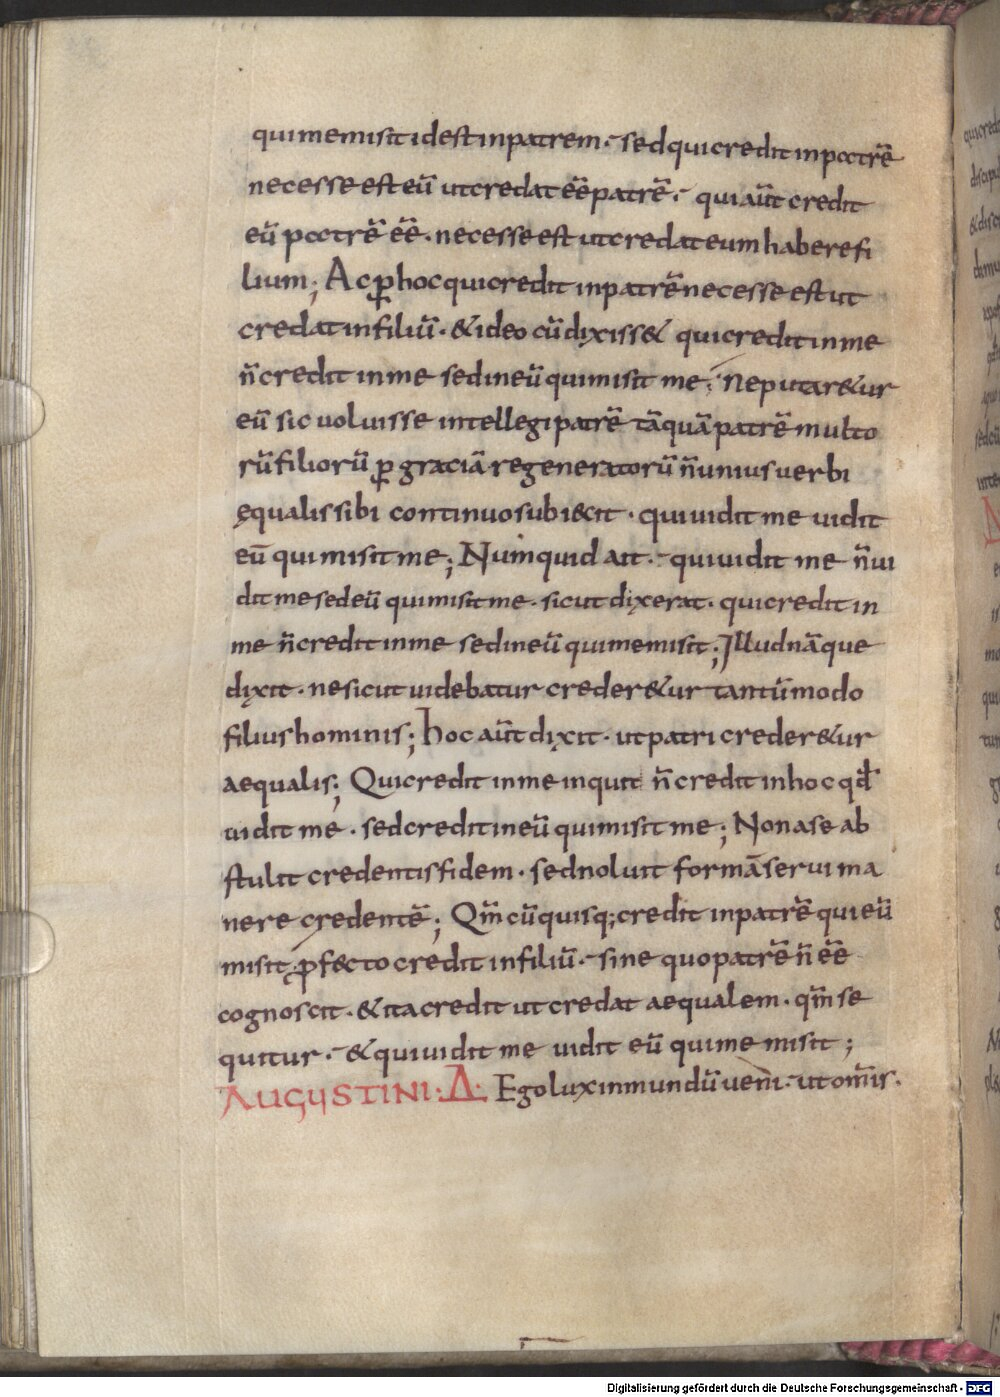 qui me misit id est in patrem · sed qui credit in patrẽ
necesse est eũ ut credat eẽ patrẽ · qui aũt credit
eũ patrẽ eẽ · necesse est ut credat eum habere fi
lium; Ac ꝑ hoc qui credit in patrẽ necesse est ut
credat in filiũ · & ideo cũ dixiss& qui credit in me
ñ credit in me sed in eũ qui misit me · Ne putar&ur
eũ sic uoluisse intellegi patrẽ tãquã patrẽ multo
rũ filiorũ ꝑ graciã regeneratorũ ñ unius uerbi
ęqualis sibi continuo subi&cit · qui uidit me uidit
eũ qui misit me; Numquid ait · qui uidit me ñ ui
dit me sed eũ qui misit me · sicut dixerat · qui credit in
me ñ credit in me sed in eũ qui me misit; Illud nãque
dixit · ne sicut uidebatur creder&ur tantũmodo
filius hominis; hoc aũt dixit · ut patri creder&ur
aequalis; Qui credit in me inquit ñ credit in hoc qđ
uidit me · sed credit in eũ qui misit me; Non a se ab
stulit credentis fidem · sed noluit formã serui ma
nere credentẽ; Qm̃ cũ quisq; credit in patrẽ qui eũ
misit · ꝓf&cto credit in filiũ · sine quo patrẽ ñ eẽ
cognoscit · & ita credit ut credat aequalem · qm̃ se
quitur · & qui uidit me uidit eũ qui me misit;
AUGUSTINI · Δ · Ego lux in mundũ ueni · ut om̃is ·
Digitalisierung gefördert durch die Deutsche Forschungsgemeinschaft - DFG